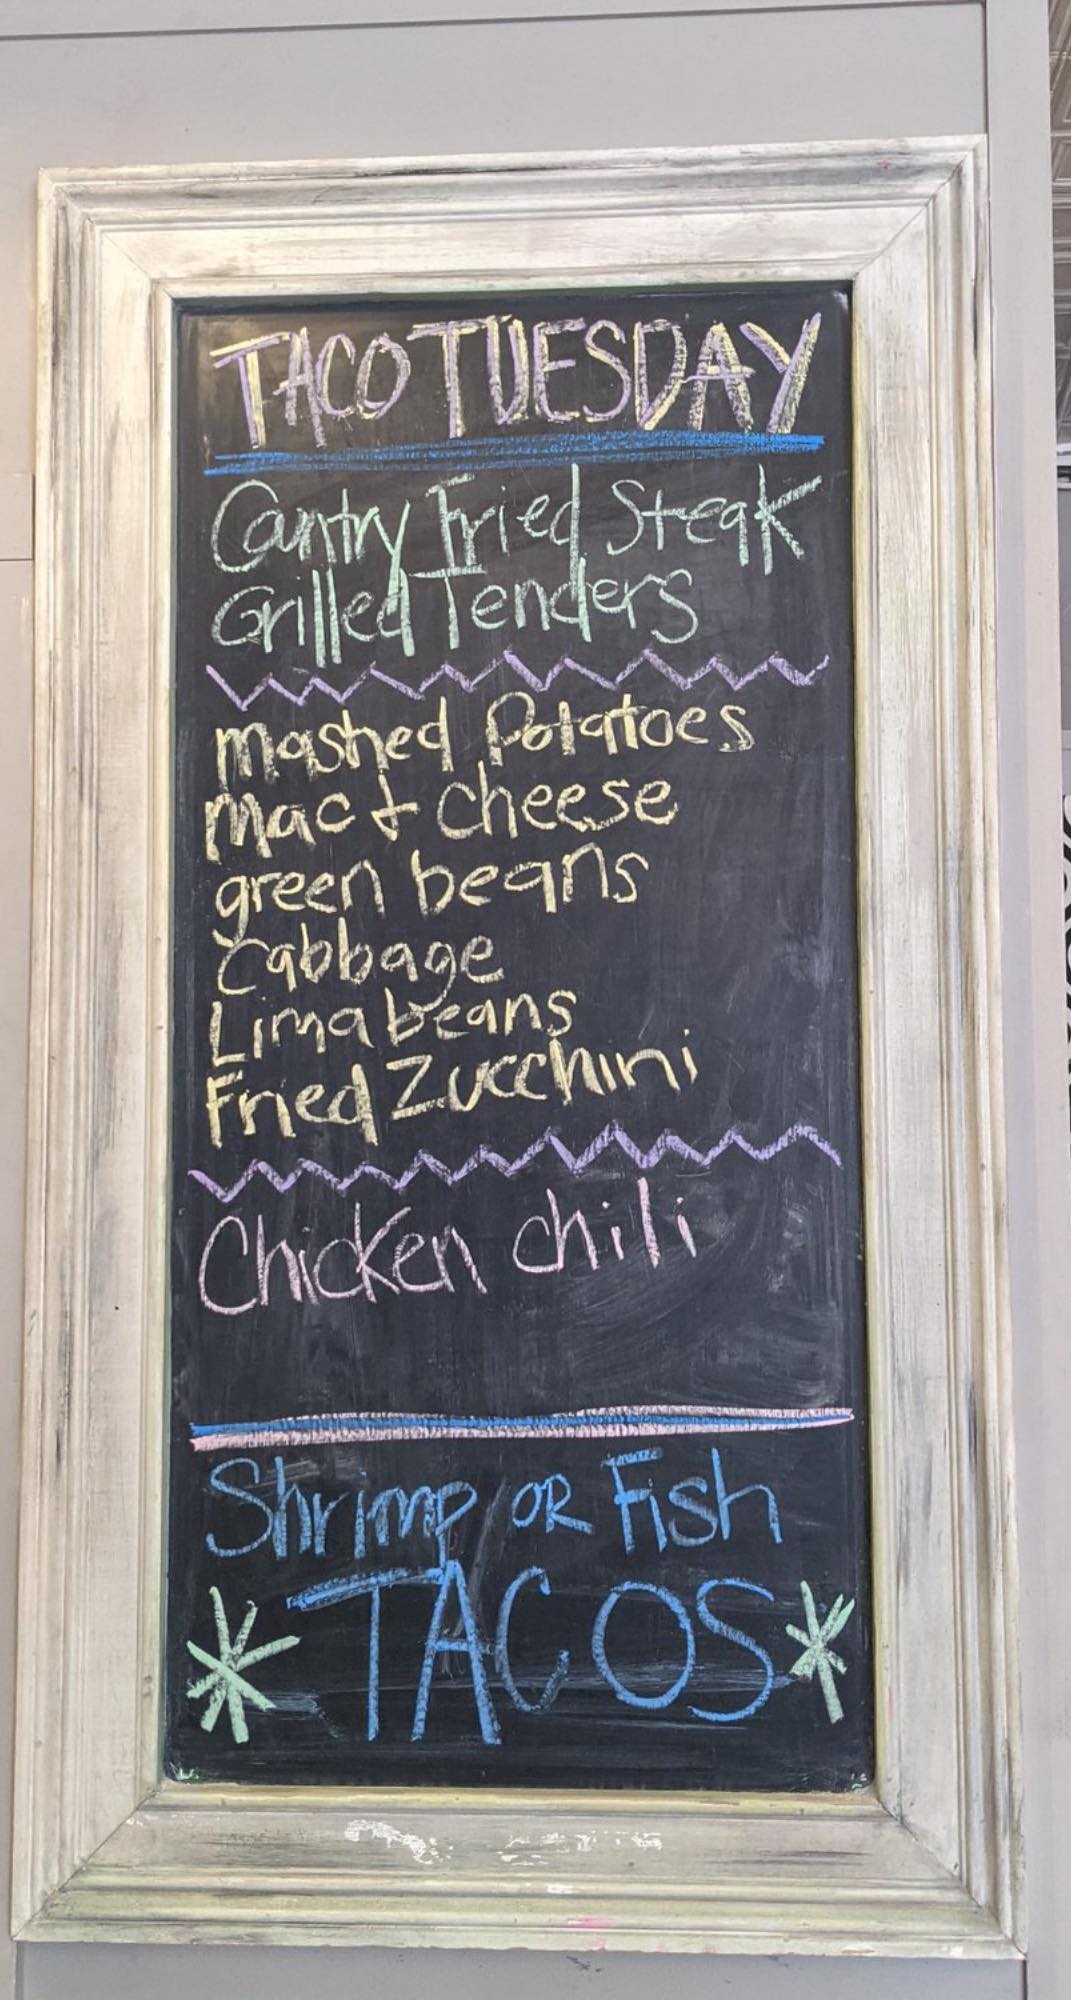 TACO TUESDAY
Cantry Fried Steak
Grilled Tenders
mashed Potatoes
mac + cheese
green beans
Cabbage
Lima beans
Fried Zucchini
Chicken chili
Shrimp OR Fish
TACOS